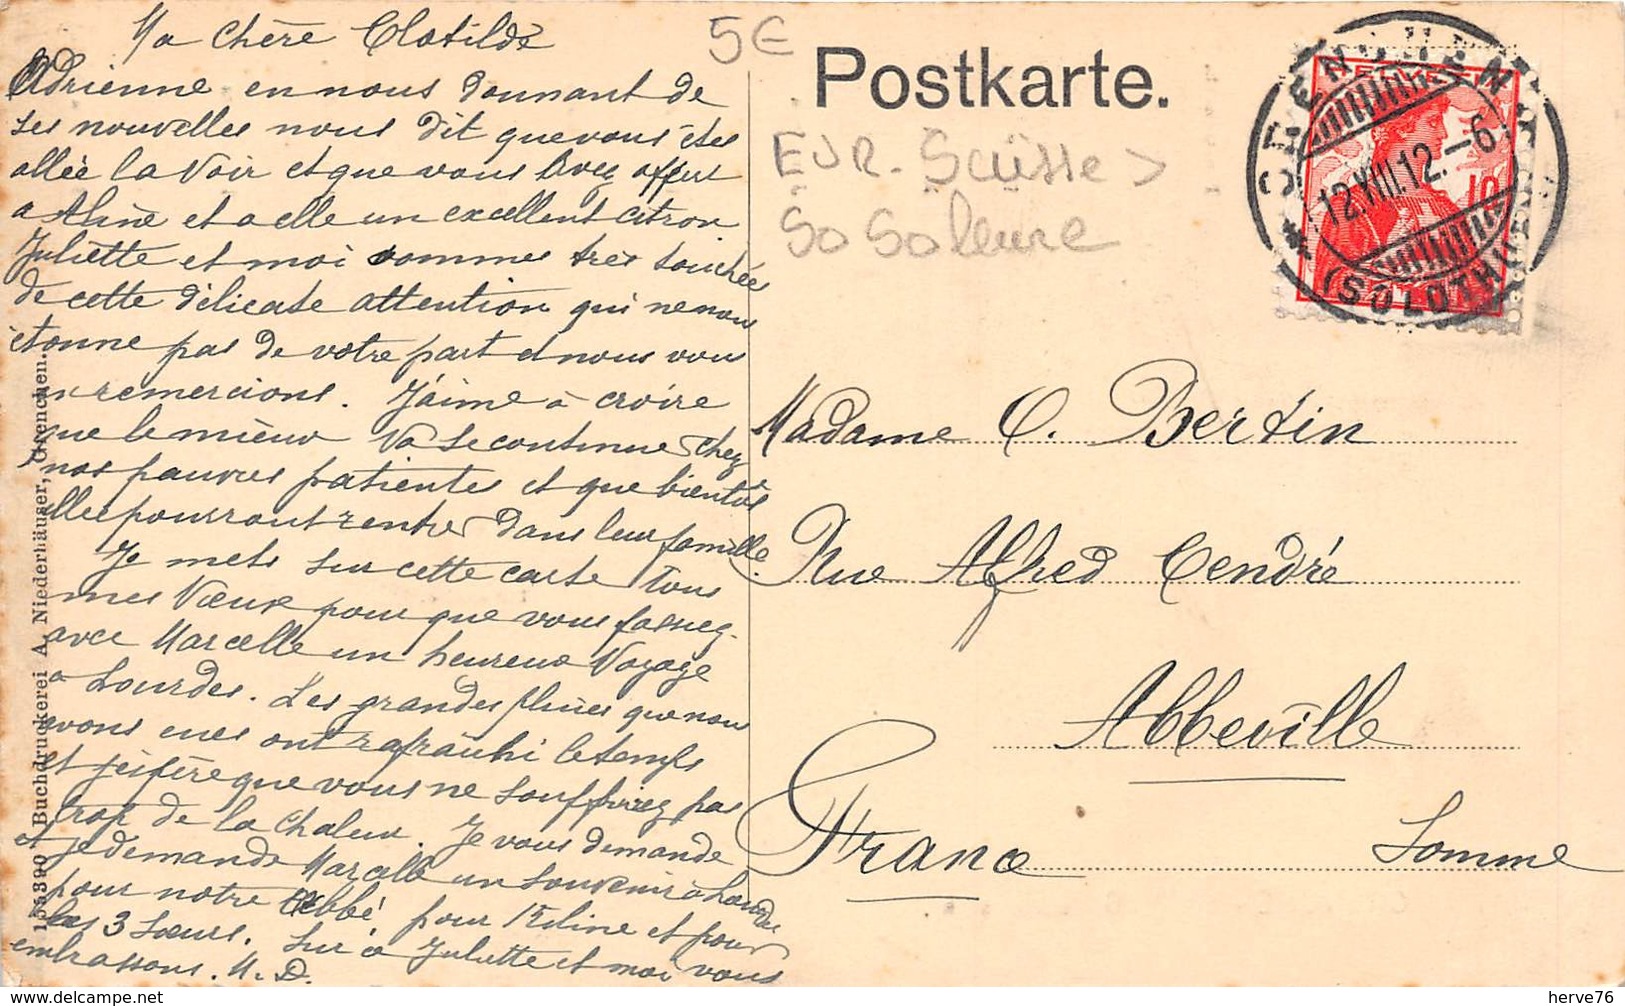 Ma Chère Clotilde
Adrienne en nous donnant de
ses nouvelles nous dit que vous êtes
allée la voir et que vous avez offert
a Aline et a elle un excellent citron
Juliette et moi sommes très touchées
de cette délicate attention qui ne nous
étonne pas de votre part et nous vous
en remercions. J'aime à croire
que le mieux va se continuer chez
nos pauvres patientes et que bientôt
elles pourront rentrer dans leur famille.
Je mets sur cette carte tous
mes Vœux pour que vous fassiez
avec Marcelle un heureux Voyage
a Lourdes. Les grandes pluies que nous
avons eues ont rafraichi le temps
et j'espère que vous ne souffrirez pas
trop de la chaleur. Je vous demande
et je demande Marcelle un souvenir à Lourdes
pour notre abbé pour Eline et pour
les 3 sœurs. Sur ce Juliette et moi vous
embrassons. M. D.
155390 Buchdruckerei A. Niederhäuser, Grenchen.
5€
Postkarte.
EUR. Suisse >
So Soleure
GRENCHEN
HELVETIA
12.VIII.12.-6
10
(SOLOTHURN)
Madame O. Bertin
Rue Alfred Cendré
Abbeville
France
Somme
delcampe.net
herve76